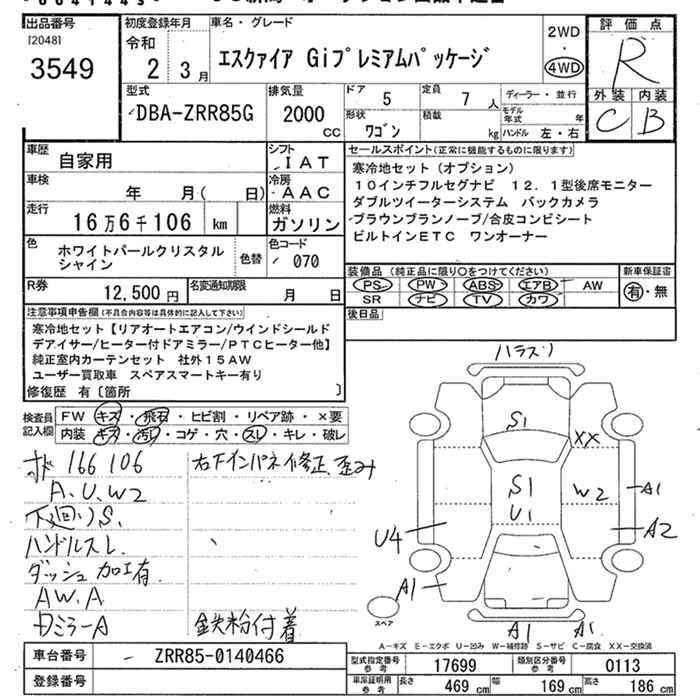 出品番号
[2048]
3549
初度登録年月
令和
2 3月
車名・グレード
エスクァイア Giプレミアムパッケージ
2WD
・
4WD
評価点
R
外装 内装
C B
型式
DBA-ZRR85G
排気量
2000
cc
ドア
5
形状
ワゴン
定員
7人
積載
kg
ディーラー・並行
モデル年式 年
ハンドル 左・右
車歴
自家用
シフト
IAT
車検
年 月( 日)
冷房
AAC
走行
16万6千106 km
燃料
ガソリン
色
ホワイトパールクリスタル
シャイン
色替
色コード
070
R券
12,500円
名変通知期限
月 日
セールスポイント(正常に機能するものに限ります)
寒冷地セット(オプション)
10インチフルセグナビ 12.1型後席モニター
ダブルツイーターシステム バックカメラ
ブラウンブランノーブ/合皮コンビシート
ビルトインETC ワンオーナー
装備品(純正品に限り○をつけてください)
PS PW ABS エアB AW
SR ナビ TV カワ
新車保証書
有・無
後日品
注意事項申告欄(不具合内容等は具体的に記入して下さい)
寒冷地セット【リアオートエアコン/ウインドシールド
デアイサー/ヒーター付ドアミラー/PTCヒーター他】
純正室内カーテンセット 社外15AW
ユーザー買取車 スペアスマートキー有り
修復歴 有〔箇所 〕
検査員記入欄
FW キズ・飛石・ヒビ割・リペア跡・×要
内装 キズ・汚れ・コゲ・穴・スレ・キレ・破レ
166106
A.U.W2
下廻りS.
ハンドルスレ
ダッシュ加工有
AW.A
右下インパネ修正、歪み
鉄粉付着
ハラスリ
S1
XX
S1
U1
W2
A1
A2
U4
A1
A1
A1
スペア
A-キズ E-エクボ U-凹み W-補修跡 S-サビ C-腐食 XX-交換済
車台番号
ZRR85-0140466
登録番号
型式指定番号 参考
17699
類別区分番号 参考
0113
車庫証明用 参考
長さ 469cm 幅 169cm 高さ 186cm